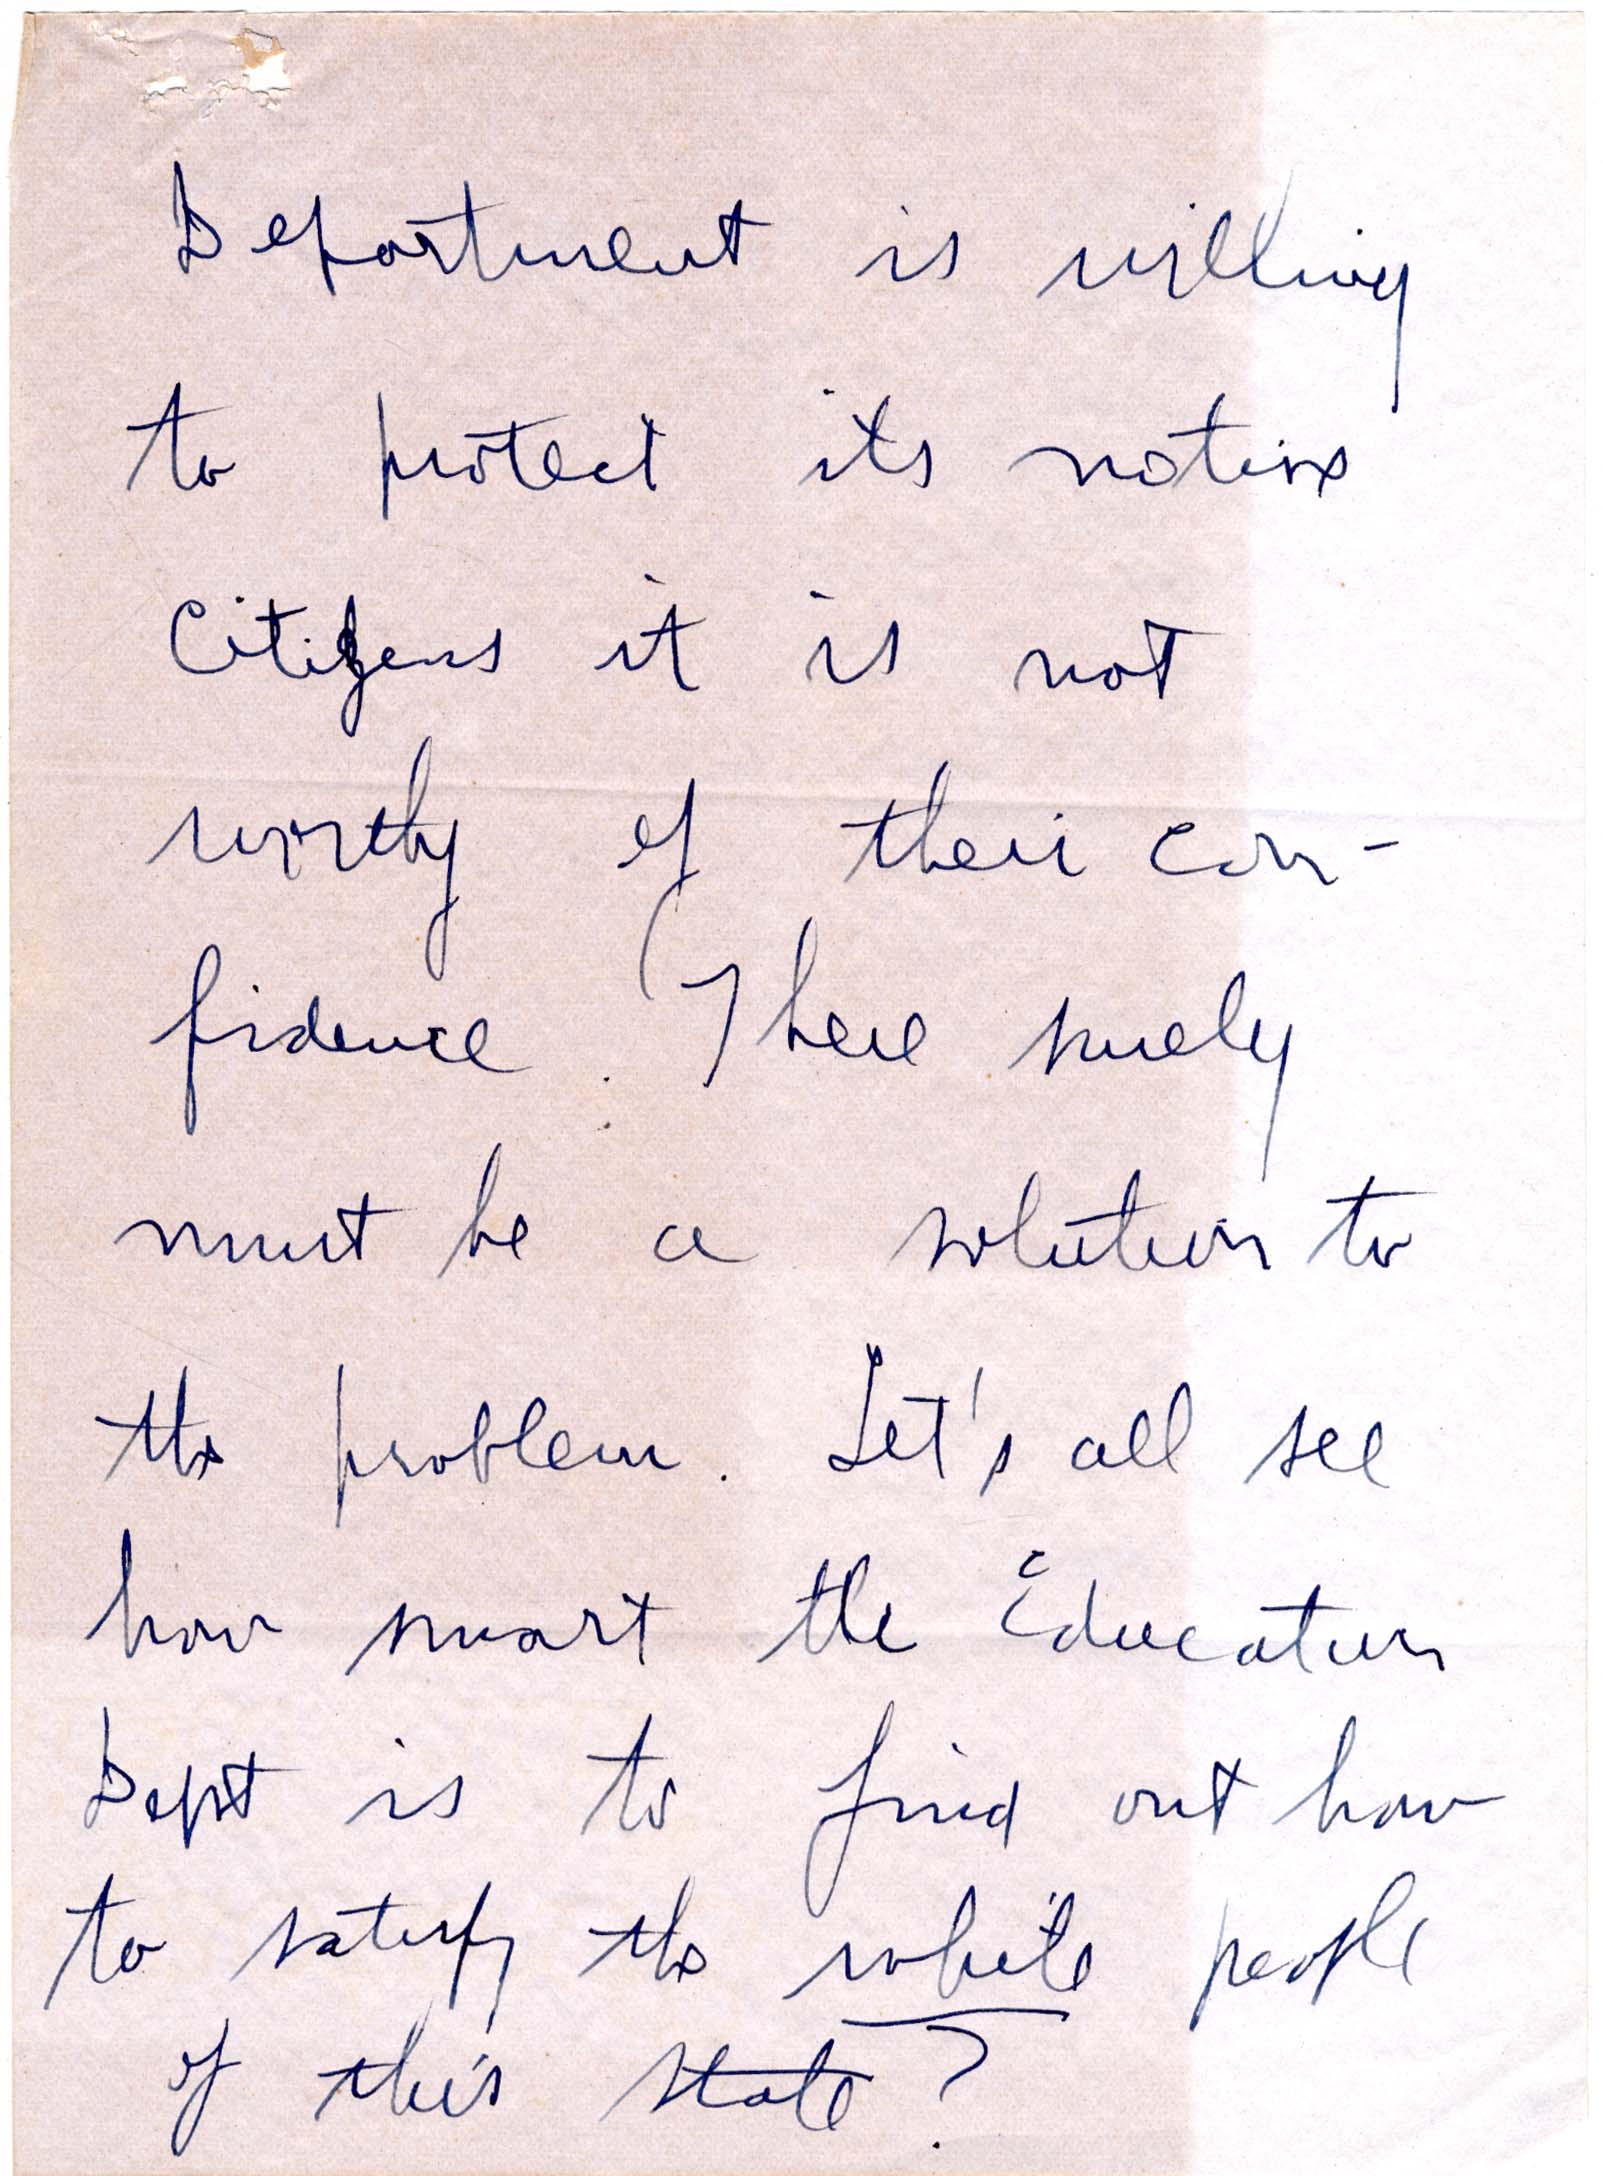 Department is willing
to protect its native
Citizens it is not
worthy of their con-
fidence. There surely
must be a solution to
the problem. Let's all see
how smart the Education
Dept is to find out how
to satisfy the white people
of this state?